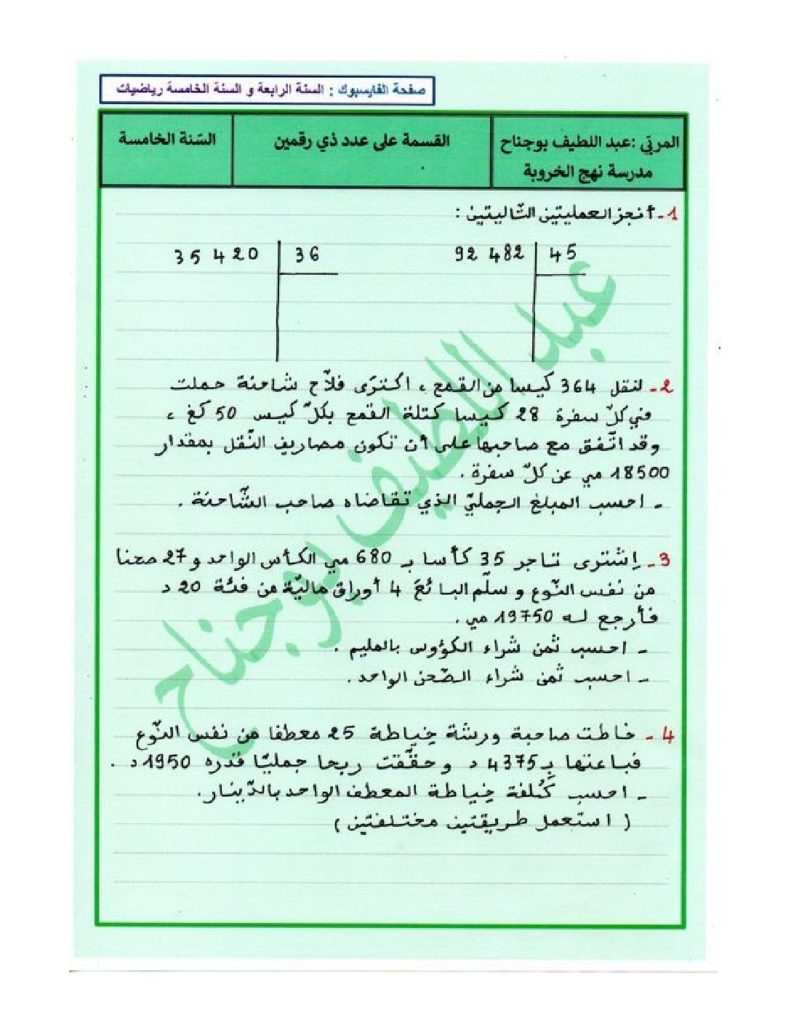 صفحة الفايسبوك : السنة الرابعة و السنة الخامسة رياضيات
المربّي :عبد اللطيف بوجناح
مدرسة نهج الخروبة
القسمة على عدد ذي رقمين
السّنة الخامسة
1- أنجز العمليتين التّاليتين :
92 482 | 45
35 420 | 36
2- لنقل 364 كيسا من القمح ، اكترى فلّاح شاحنة حملت
في كلّ سفرة 28 كيسا كتلة القمح بكلّ كيس 50 كغ ،
وقد اتّفق مع صاحبها على أن تكون مصاريف النّقل بمقدار
18500 مي عن كلّ سفرة .
- احسب المبلغ الجمليّ الذي تقاضاه صاحب الشّاحنة .
3- اِشترى تاجر 35 كأسا بـ 680 مي الكأس الواحد و 27 صحنا
من نفس النّوع و سلّم البائعَ 4 أوراق ماليّة من فئة 20 د
فأرجع لـه 19750 مي .
- احسب ثمن شراء الكؤوس بالمليم .
- احسب ثمن شراء الصّحن الواحد .
4- خاطت صاحبة ورشة خِياطة 25 معطفا من نفس النّوع
فباعتها بـ 4375 د و حقّقت ربحا جمليّا قدره 1950 د .
- احسب كُلفة خِياطة المعطف الواحد بالدّينار.
( استعمل طريقتين مختلفتين )
عبد اللطيف بوجناح